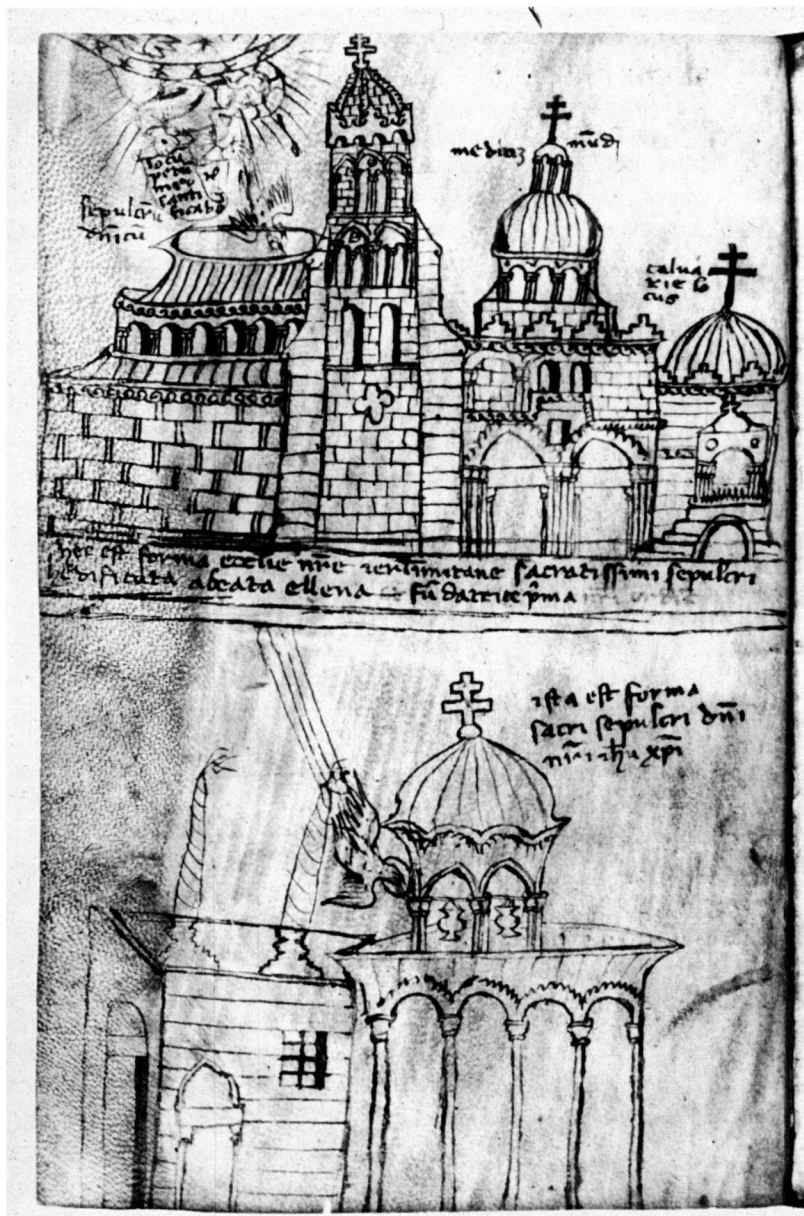 locus
sepulcrū
dn̄icū
mediū mūdi
calva
rie lo
cus
hec est forma ecclie nr̄e ierl̄imitane sacratissimi sepulcri
edificata abeata ellena fūdatrice pͥma
ista est forma
sacri sepulcri dn̄i
nr̄i ih̄u xp̄i